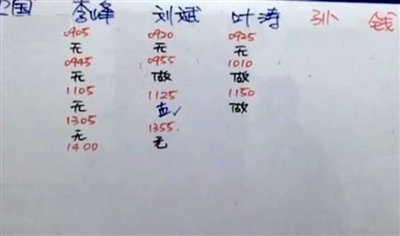 国 李峰 刘斌 叶涛 钱
0905 0920 0925
无 无 无
0945 0955 1010
无 做 做
1105 1125 1150
无 ✓ 做
1305 1355
无 无
1400